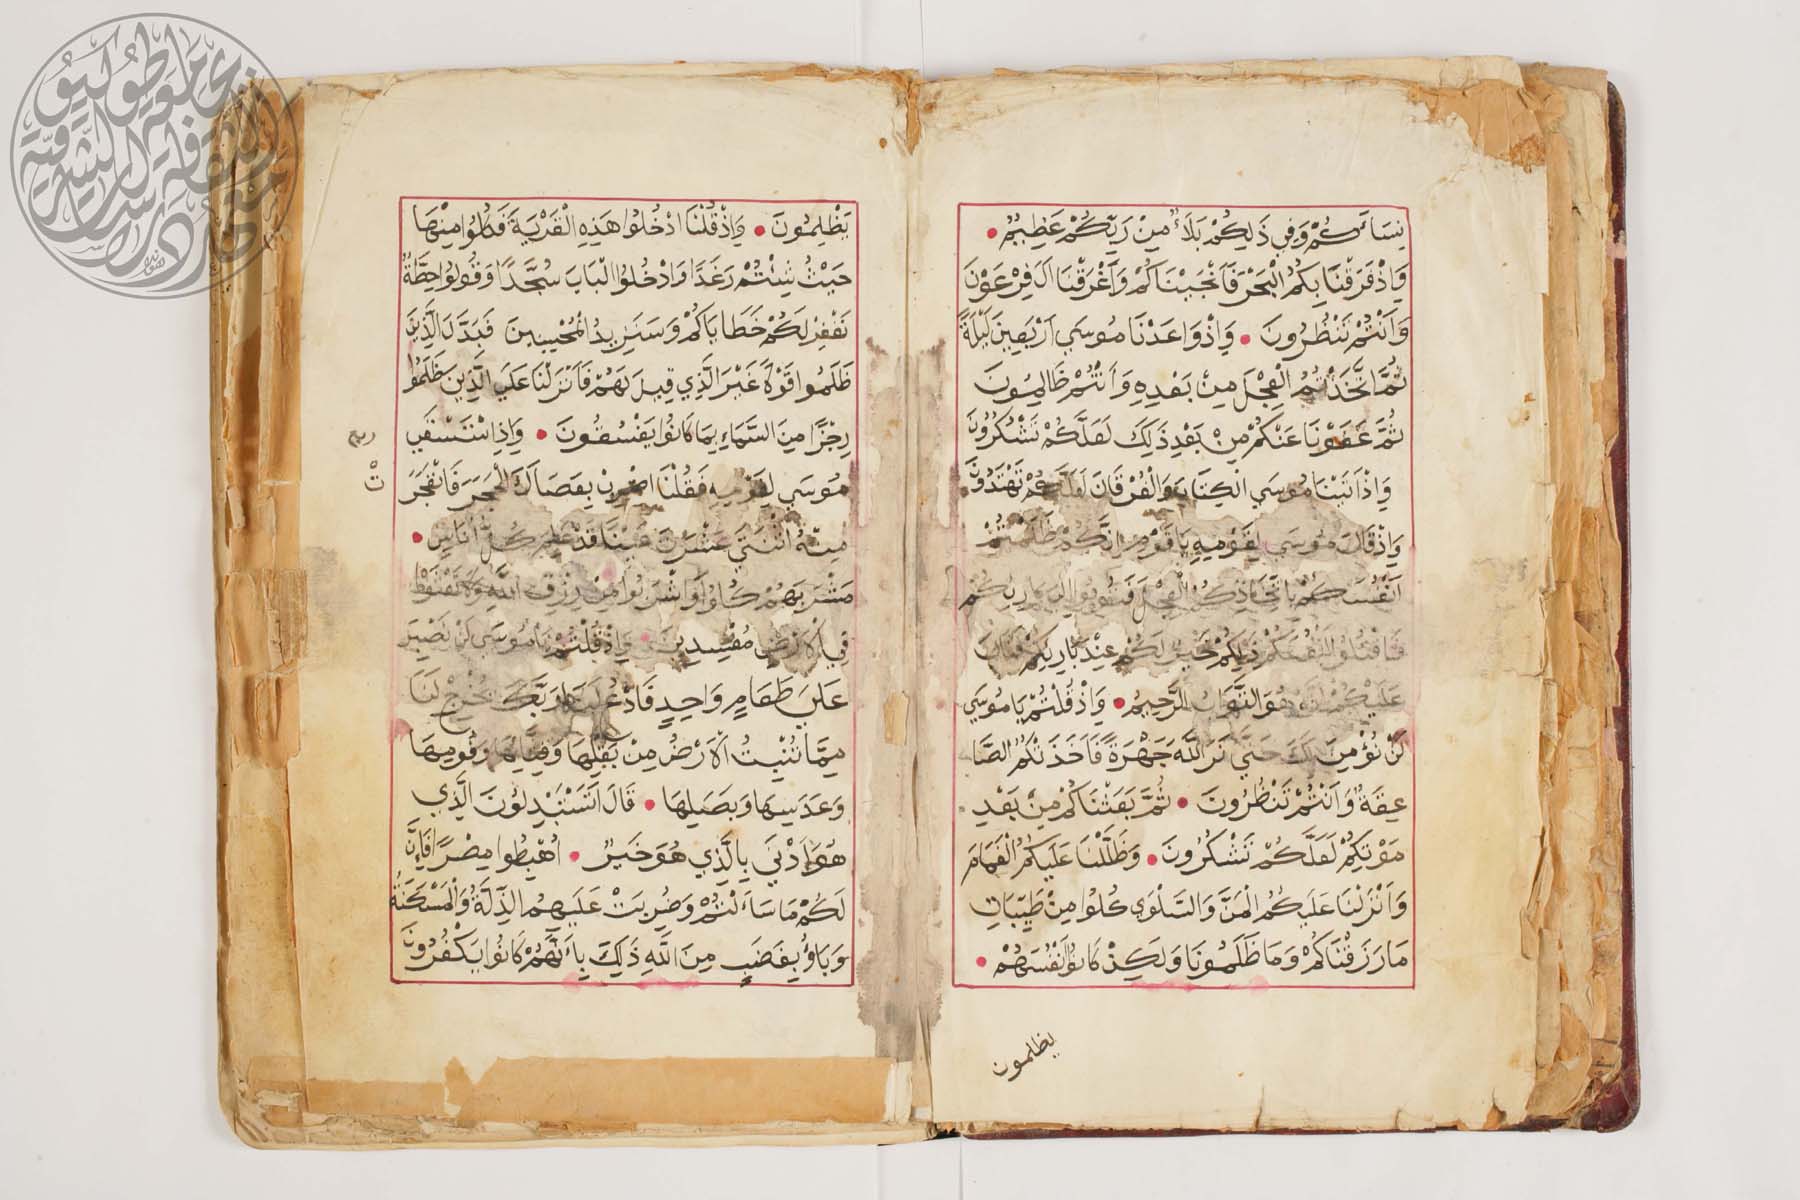 نِسَاءَكُمْ وَفِي ذَلِكُمْ بَلَاءٌ مِنْ رَبِّكُمْ عَظِيمٌ
وَإِذْ فَرَقْنَا بِكُمُ الْبَحْرَ فَاَنْجَيْنَاكُمْ وَاَغْرَقْنَا الَ فِرْعَوْنَ
وَاَنْتُمْ تَنْظُرُونَ وَإِذْ وَاعَدْنَا مُوسَي اَرْبَعِينَ لَيْلَةً
ثُمَّ اتَّخَذْتُمُ الْعِجْلَ مِنْ بَعْدِهِ وَاَنْتُمْ ظَالِمُونَ
ثُمَّ عَفَوْنَا عَنْكُمْ مِنْ بَعْدِ ذَلِكَ لَعَلَّكُمْ تَشْكُرُونَ
وَإِذْ اتَيْنَا مُوسَي الْكِتَابَ وَالْفُرْقَانَ لَعَلَّكُمْ تَهْتَدُونَ
وَإِذْ قَالَ مُوسَي لِقَوْمِهِ يَا قَوْمِ اِنَّكُمْ ظَلَمْتُمْ
اَنْفُسَكُمْ بِاتِّخَاذِكُمُ الْعِجْلَ فَتُوبُوا اِلَي بَارِئِكُمْ
فَاقْتُلُوا اَنْفُسَكُمْ ذَلِكُمْ خَيْرٌ لَكُمْ عِنْدَ بَارِئِكُمْ فَتَابَ
عَلَيْكُمْ اِنَّهُ هُوَ التَّوَّابُ الرَّحِيمُ وَإِذْ قُلْتُمْ يَا مُوسَي
لَنْ نُؤْمِنَ لَكَ حَتَّي نَرَ اللَّهَ جَهْرَةً فَاَخَذَتْكُمُ الصَّا
عِقَةُ وَاَنْتُمْ تَنْظُرُونَ ثُمَّ بَعَثْنَاكُمْ مِنْ بَعْدِ
مَوْتِكُمْ لَعَلَّكُمْ تَشْكُرُونَ وَظَلَّلْنَا عَلَيْكُمُ الْغَمَامَ
وَاَنْزَلْنَا عَلَيْكُمُ الْمَنَّ وَالسَّلْوَي كُلُوا مِنْ طَيِّبَاتِ
مَا رَزَقْنَاكُمْ وَمَا ظَلَمُونَا وَلَكِنْ كَانُوا اَنْفُسَهُمْ
يظلمون
يَظْلِمُونَ وَإِذْ قُلْنَا ادْخُلُوا هَذِهِ الْقَرْيَةَ فَكُلُوا مِنْهَا
حَيْثُ شِئْتُمْ رَغَدًا وَادْخُلُوا الْبَابَ سُجَّدًا وَقُولُوا حِطَّةٌ
نَغْفِرْ لَكُمْ خَطَايَاكُمْ وَسَنَزِيدُ الْمُحْسِنِينَ فَبَدَّلَ الَّذِينَ
ظَلَمُوا قَوْلًا غَيْرَ الَّذِي قِيلَ لَهُمْ فَاَنْزَلْنَا عَلَي الَّذِينَ ظَلَمُوا
رِجْزًا مِنَ السَّمَاءِ بِمَا كَانُوا يَفْسُقُونَ وَإِذِ اسْتَسْقَي
مُوسَي لِقَوْمِهِ فَقُلْنَا اضْرِبْ بِعَصَاكَ الْحَجَرَ فَانْفَجَرَ
مِنْهُ اثْنَتَي عَشْرَةَ عَيْنًا قَدْ عَلِمَ كُلُّ اُنَاسٍ
مَشْرَبَهُمْ كُلُوا وَاشْرَبُوا مِنْ رِزْقِ اللَّهِ وَلَا تَعْثَوْا
فِي الْاَرْضِ مُفْسِدِينَ وَإِذْ قُلْتُمْ يَا مُوسَي لَنْ نَصْبِرَ
عَلَي طَعَامٍ وَاحِدٍ فَادْعُ لَنَا رَبَّكَ يُخْرِجْ لَنَا
مِمَّا تُنْبِتُ الْاَرْضُ مِنْ بَقْلِهَا وَقِثَّائِهَا وَفُومِهَا
وَعَدَسِهَا وَبَصَلِهَا قَالَ اَتَسْتَبْدِلُونَ الَّذِي
هُوَ اَدْنَي بِالَّذِي هُوَ خَيْرٌ اهْبِطُوا مِصْرًا فَاِنَّ
لَكُمْ مَا سَاَلْتُمْ وَضُرِبَتْ عَلَيْهِمُ الذِّلَّةُ وَالْمَسْكَنَةُ
وَبَاؤُ بِغَضَبٍ مِنَ اللَّهِ ذَلِكَ بِاَنَّهُمْ كَانُوا يَكْفُرُونَ